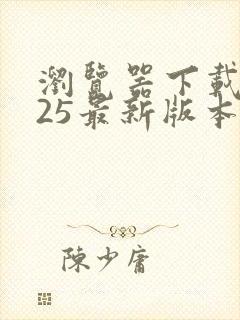 瀏覽器下載
25最新版本
陳少庸